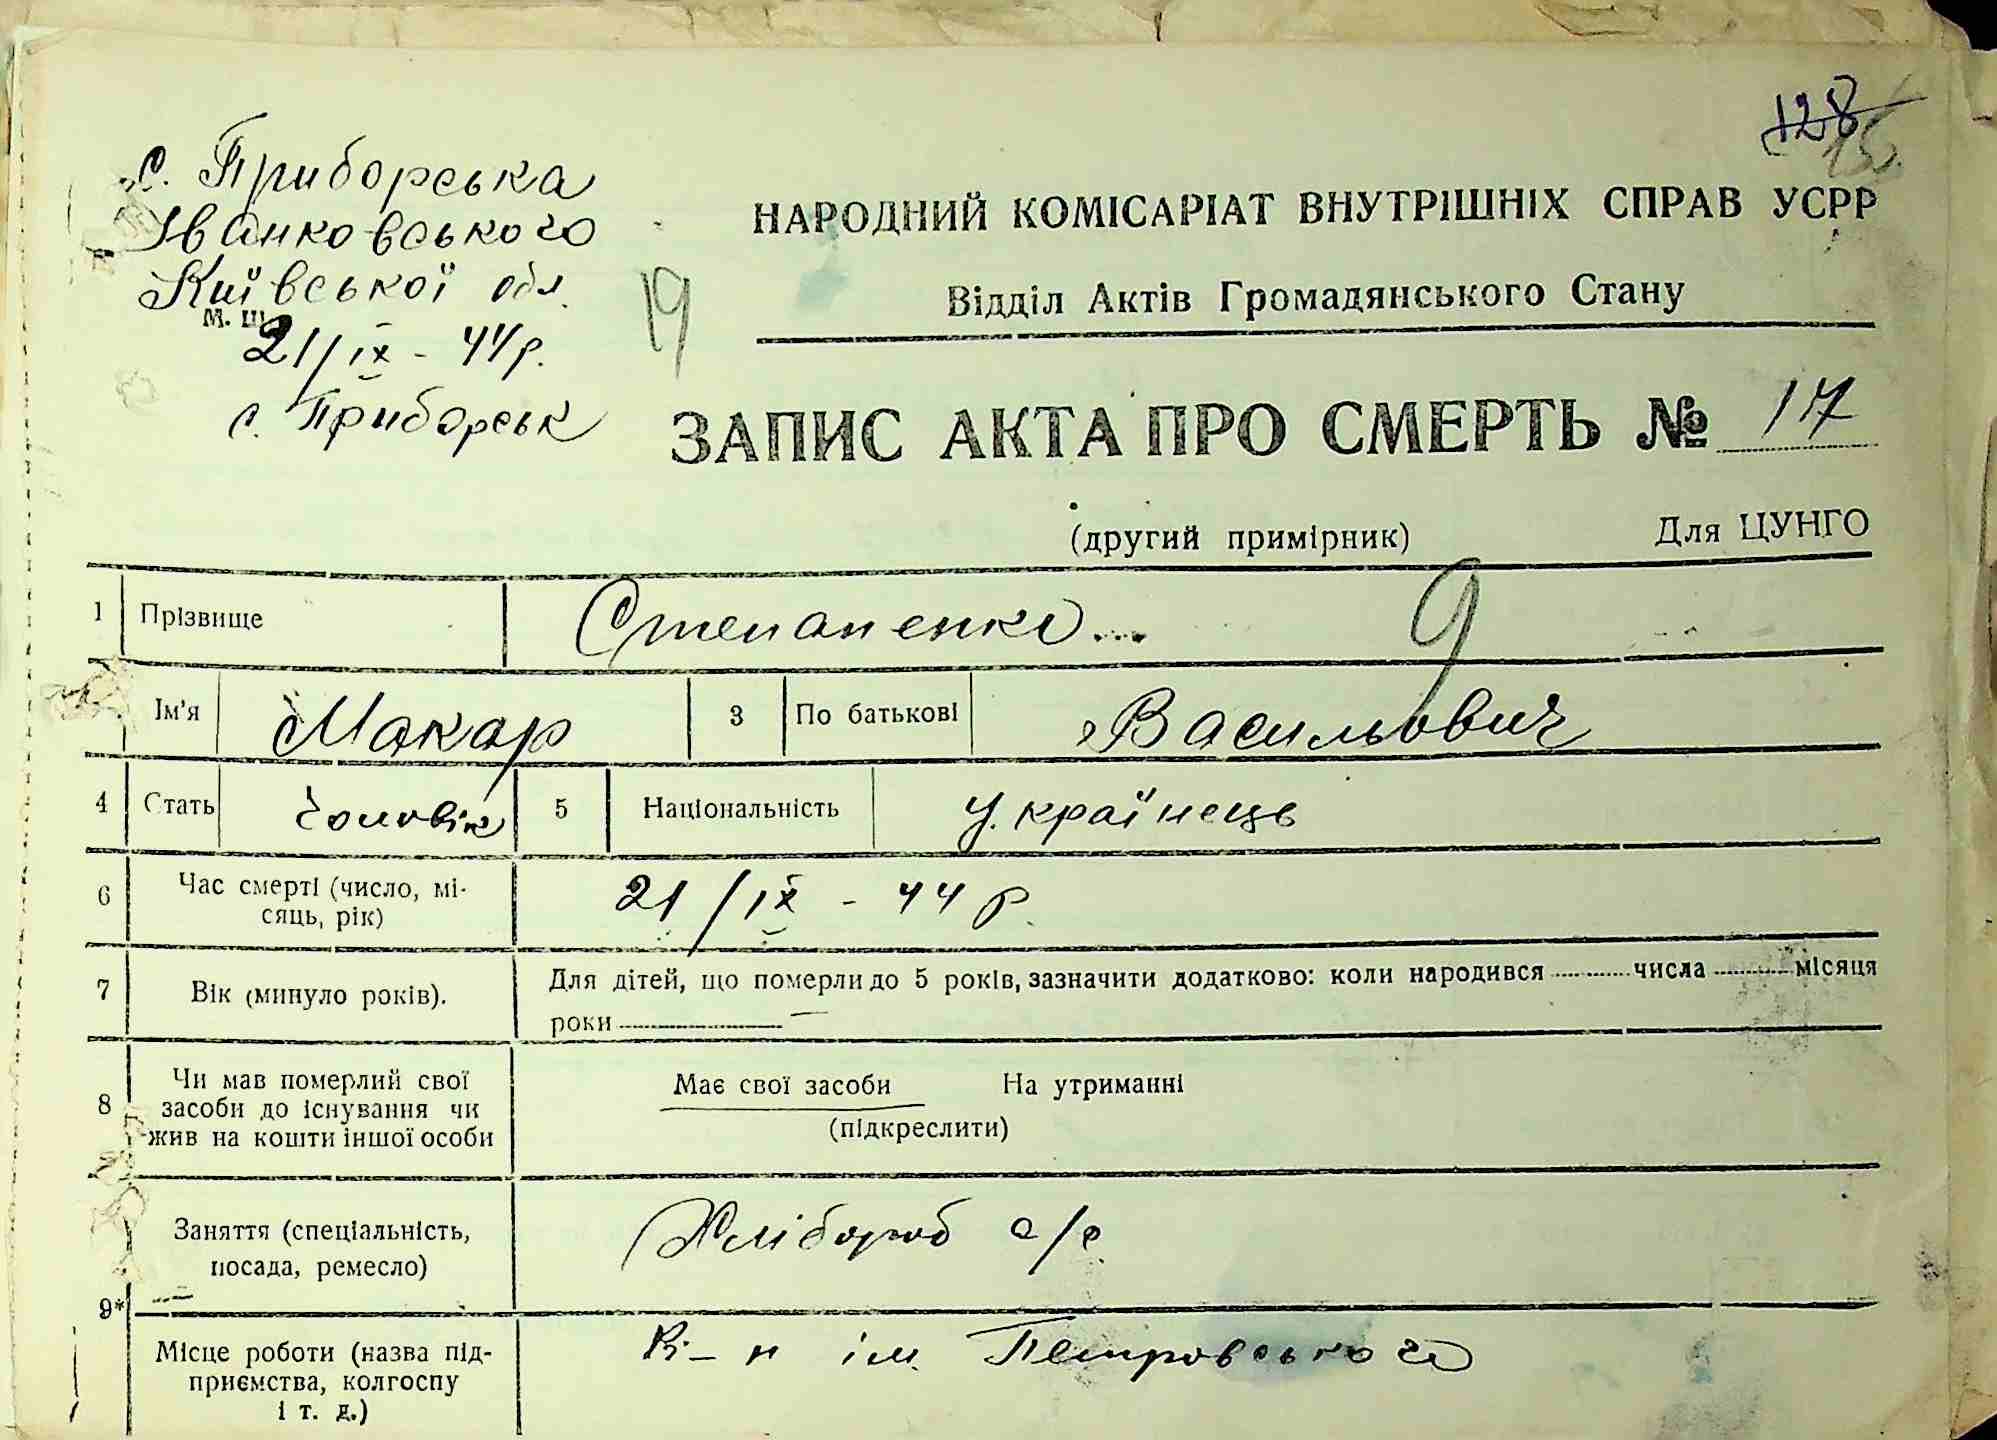 128
с. Приборська
Іванковського
Київської обл.
М. Ш.
21/ІХ - 44 р.
с. Приборськ
19
НАРОДНИЙ КОМІСАРІАТ ВНУТРІШНІХ СПРАВ УСРР
Відділ Актів Громадянського Стану
ЗАПИС АКТА ПРО СМЕРТЬ № 17
(другий примірник) Для ЦУНГО
1 Прізвище Степаненко 9
Ім'я Макар 3 По батькові Васильович
4 Стать Чоловік 5 Національність Українець
6 Час смерті (число, мі-
сяць, рік) 21/ІХ - 44 р.
7 Вік (минуло років). Для дітей, що померли до 5 років, зазначити додатково: коли народився числа місяця
роки
8 Чи мав померлий свої
засоби до існування чи
жив на кошти іншої особи
Має свої засоби На утриманні
(підкреслити)
9* Заняття (спеціальність,
посада, ремесло) Хлібороб
Місце роботи (назва під-
приємства, колгоспу
і т. д.)
ім. Петровського